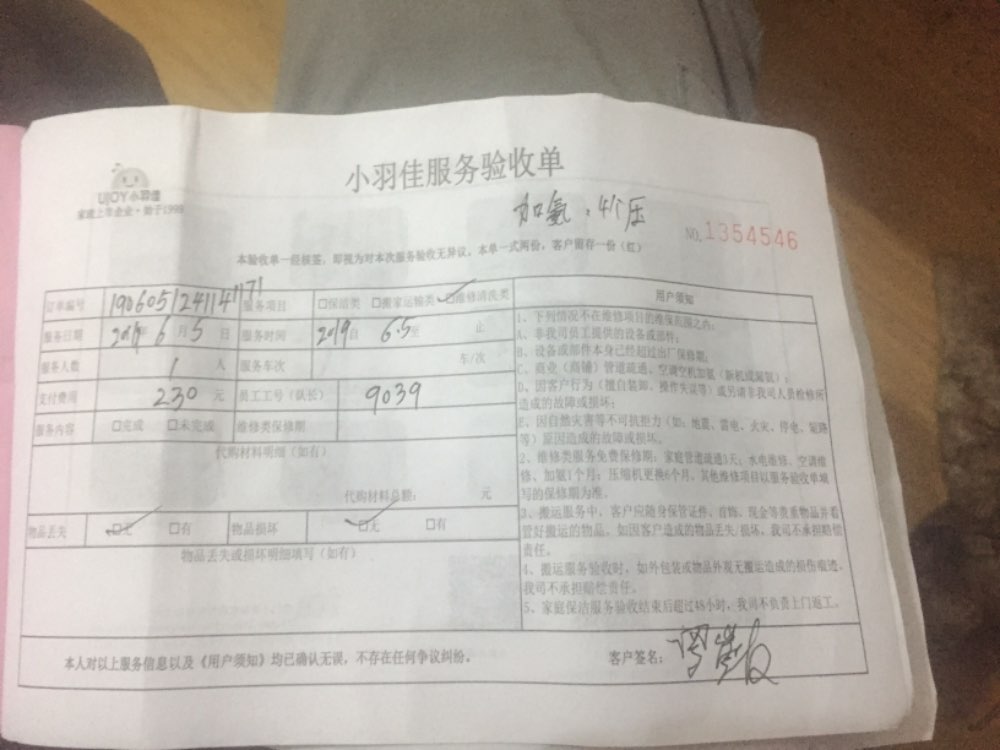 小羽佳服务验收单
UJOY小羽佳
家政上市企业·始于1998
加氨，4个压
NO.1354546
本验收单一经核签，即视为对本次服务验收无异议。本单一式两份，客户留存一份（红）
订单编号 服务项目 □保洁类 □搬家运输类 □维修清洗类
服务日期 2019年6月5日 服务时间 2019自6.5至 止
服务人数 1人 服务车次 车/次
支付费用 230元 员工工号（队长） 9039
服务内容 □完成 □未完成 维修类保修期
代购材料明细（如有）
代购材料总额： 元
物品丢失 □无 □有 物品损坏 □无 □有
物品丢失或损坏明细填写（如有）
用户须知
1、下列情况不在维修项目的维保范围之内：
A、非我司员工提供的设备或部件；
B、设备或部件本身已经超过出厂保修期；
C、商业（商铺）管道疏通、空调空机加氨（新机或漏氨）；
D、因客户行为（擅自装卸、操作失误等）或另请非我司人员维修所
造成的故障或损坏；
E、因自然灾害等不可抗拒力（如：地震、雷电、火灾、停电、短路
等）原因造成的故障或损坏。
2、维修类服务免费保修期：家庭管道疏通3天；水电维修、空调维
修、加氨1个月；压缩机更换6个月。其他维修项目以服务验收单填
写的保修期为准。
3、搬运服务中，客户应随身保管证件、首饰、现金等贵重物品并看
管好搬运的物品。如因客户造成的物品丢失/损坏，我司不承担赔偿
责任。
4、搬运服务验收时，如外包装或物品外观无搬运造成的损伤痕迹，
我司不承担赔偿责任。
5、家庭保洁服务验收结束后超过48小时，我司不负责上门返工。
本人对以上服务信息以及《用户须知》均已确认无误，不存在任何争议纠纷。
客户签名：